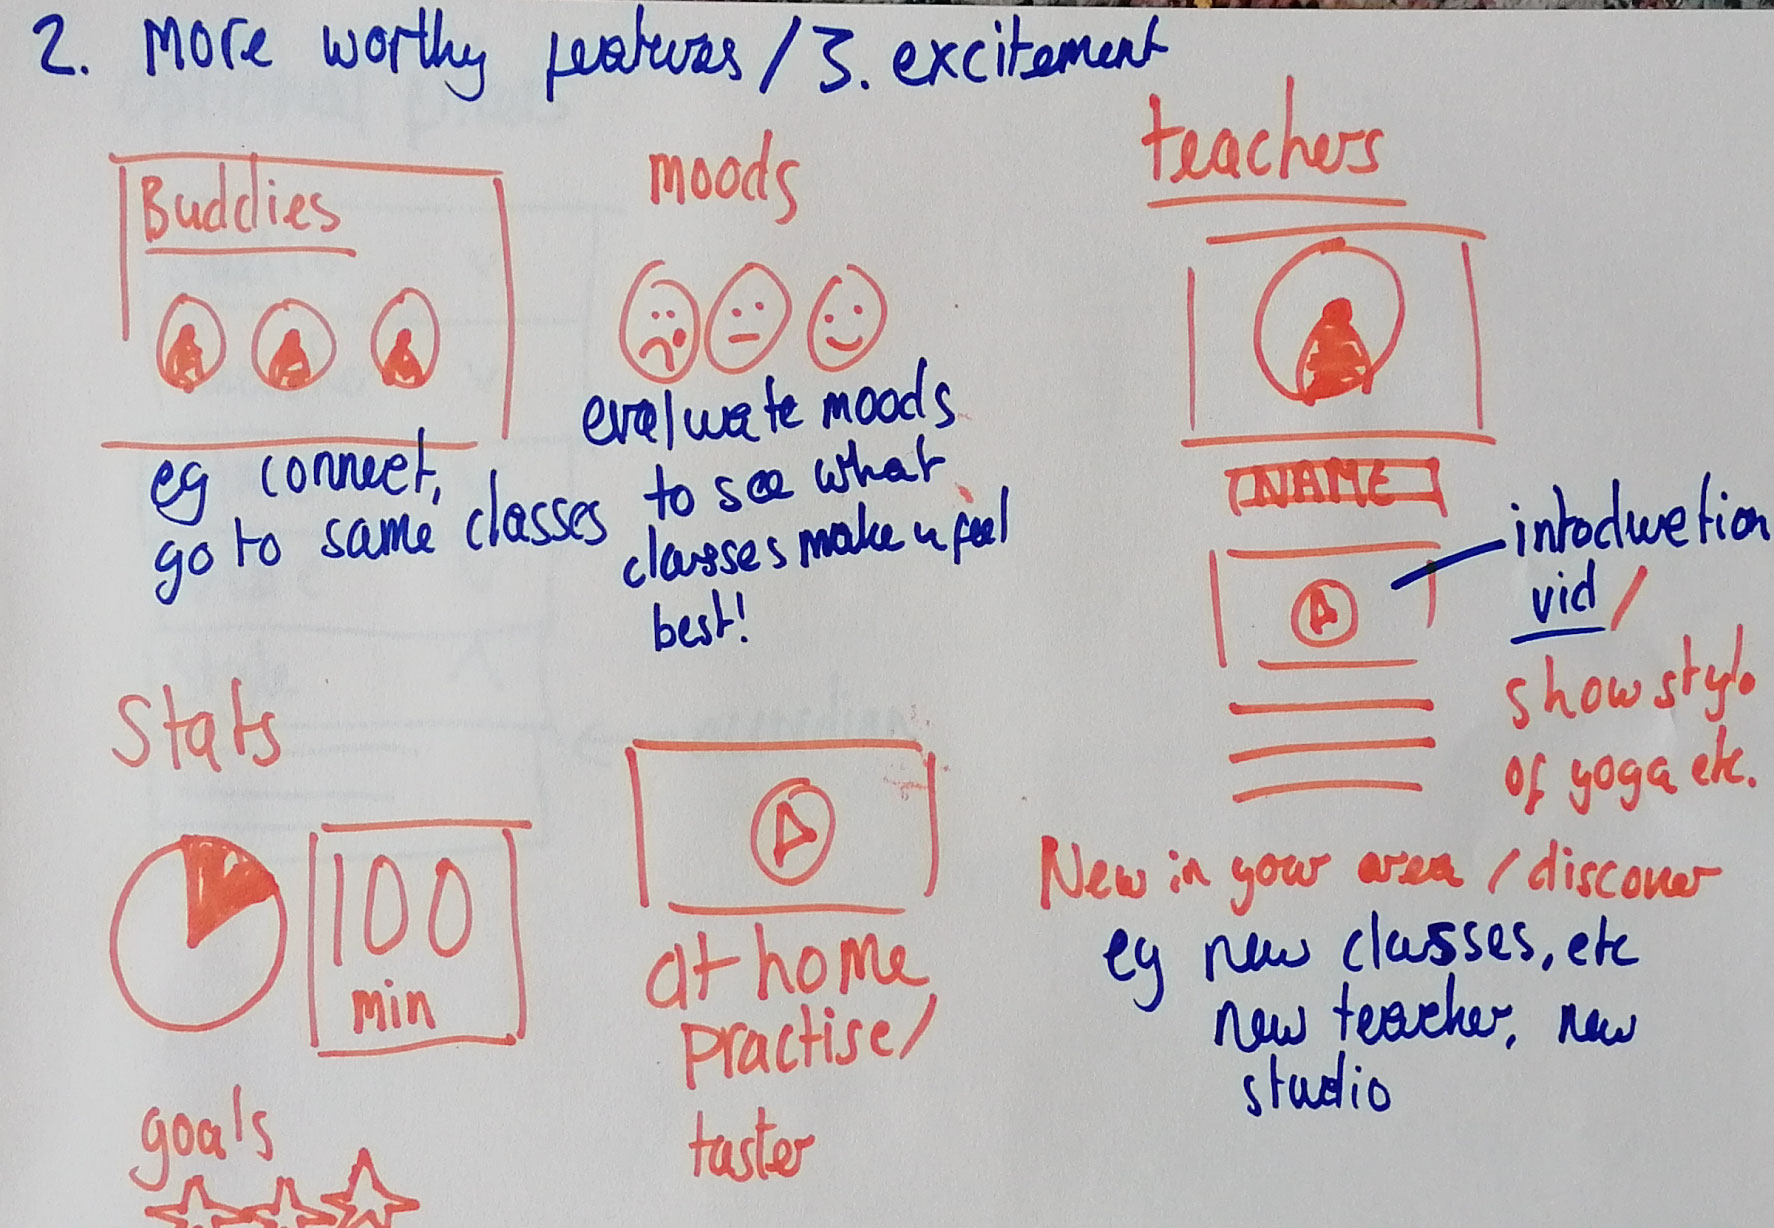 2. More worthy features / 3. excitement
Buddies
eg connect,
go to same classes
moods
evaluate moods
to see what
classes make u feel
best!
teachers
NAME
introduction
vid /
show style
of yoga etc.
Stats
100
min
goals
at home
practise/
taster
New in your area / discover
eg new classes, etc
new teacher, new
studio